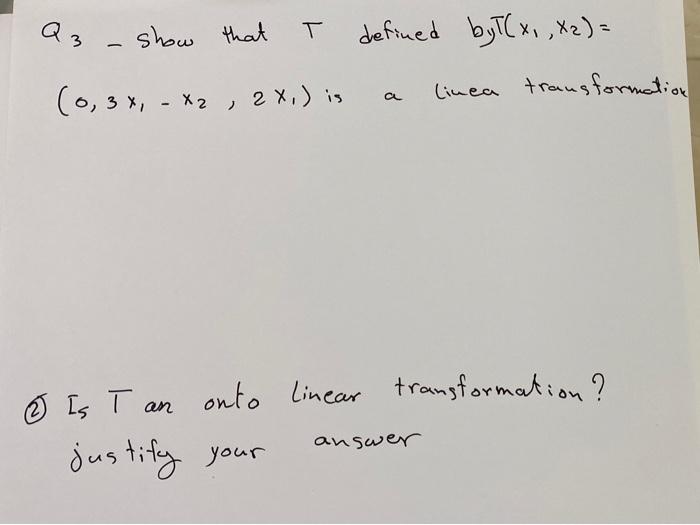 Q3 - show that T defined by T(x₁, x₂) =
(0, 3x₁ - x₂, 2x₁) is a linea transformation
② Is T an onto linear transformation?
justify your answer